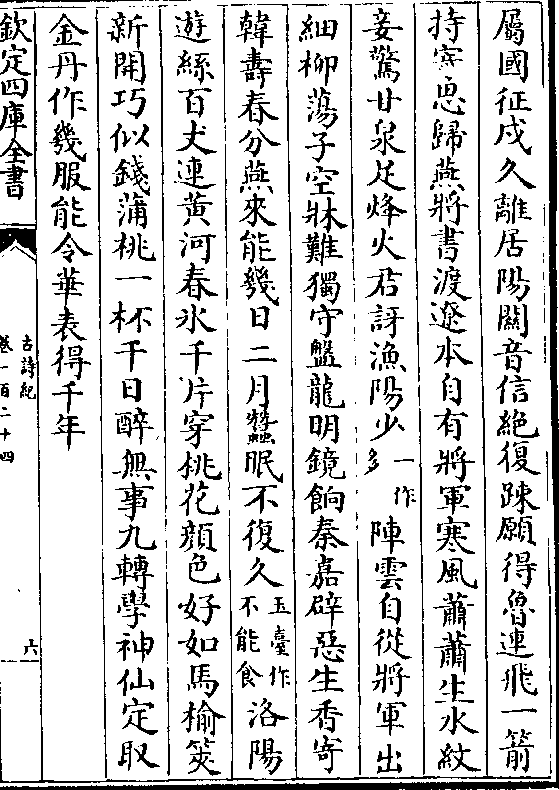 屬國征戍久離居陽關音信絶復踈願得魯連飛一箭
持寄思歸燕將書渡遼本自有將軍寒風蕭蕭生水紋
妾驚甘泉足烽火君訝漁陽少一作多陣雲自從將軍出
細柳蕩子空牀難獨守盤龍明鏡餉秦嘉辟惡生香寄
韓壽春分燕來能幾日二月蠶眠不復久玉臺作不能食洛陽
遊絲百丈連黄河春氷千片穿桃花顔色好如馬榆莢
新開巧似錢蒲桃一杯千日醉無事九轉學神仙定取
金丹作幾服能令華表得千年
欽定四庫全書
古詩紀
卷一百二十四
六